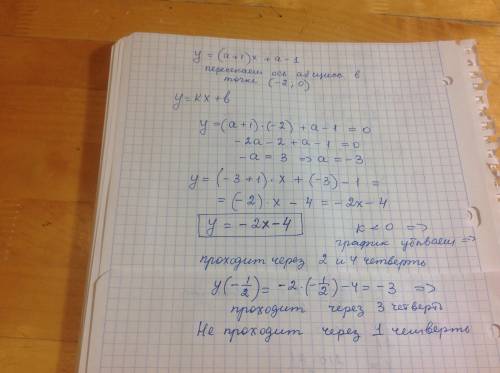 y = (a+1)x + a - 1
пересекает ось абсцисс в
точке (-2, 0)
y = kx + b
y = (a+1)·(-2) + a - 1 = 0
-2a - 2 + a - 1 = 0
-a = 3 => a = -3
y = (-3+1)·x + (-3) - 1 =
= (-2)·x - 4 = -2x - 4
y = -2x - 4
k < 0 =>
график убывает =>
проходит через 2 и 4 четверть
y(-1/2) = -2·(-1/2) - 4 = -3 =>
проходит через 3 четверть
Не проходит через 1 четверть